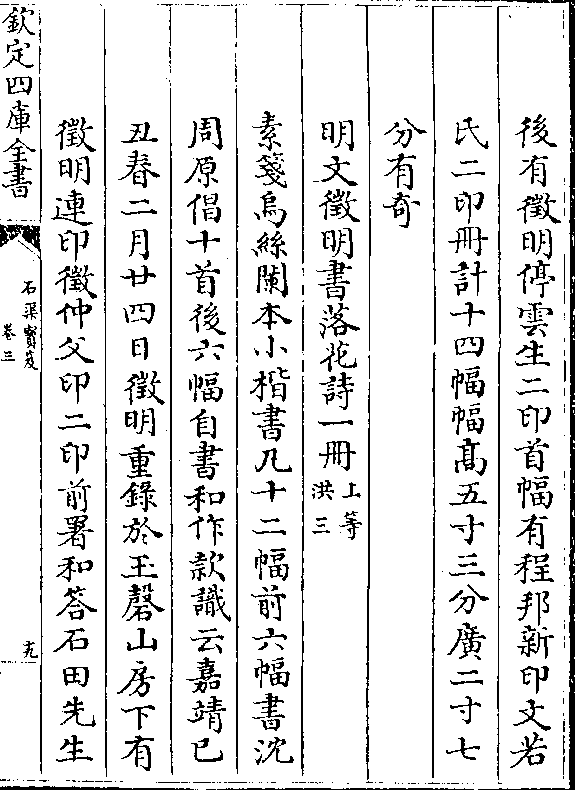 後有徵明停雲生二印首幅有程邦新印文若
氏二印冊計十四幅幅髙五寸三分廣二寸七
分有奇
明文徵明書落花詩一冊上等洪三
素箋烏絲闌本小楷書凡十二幅前六幅書沈
周原倡十首後六幅自書和作款識云嘉靖己
丑春二月廿四日徵明重錄於玉磬山房下有
徵明連印徵仲父印二印前署和答石田先生
欽定四庫全書
石渠寳笈
卷三
十九